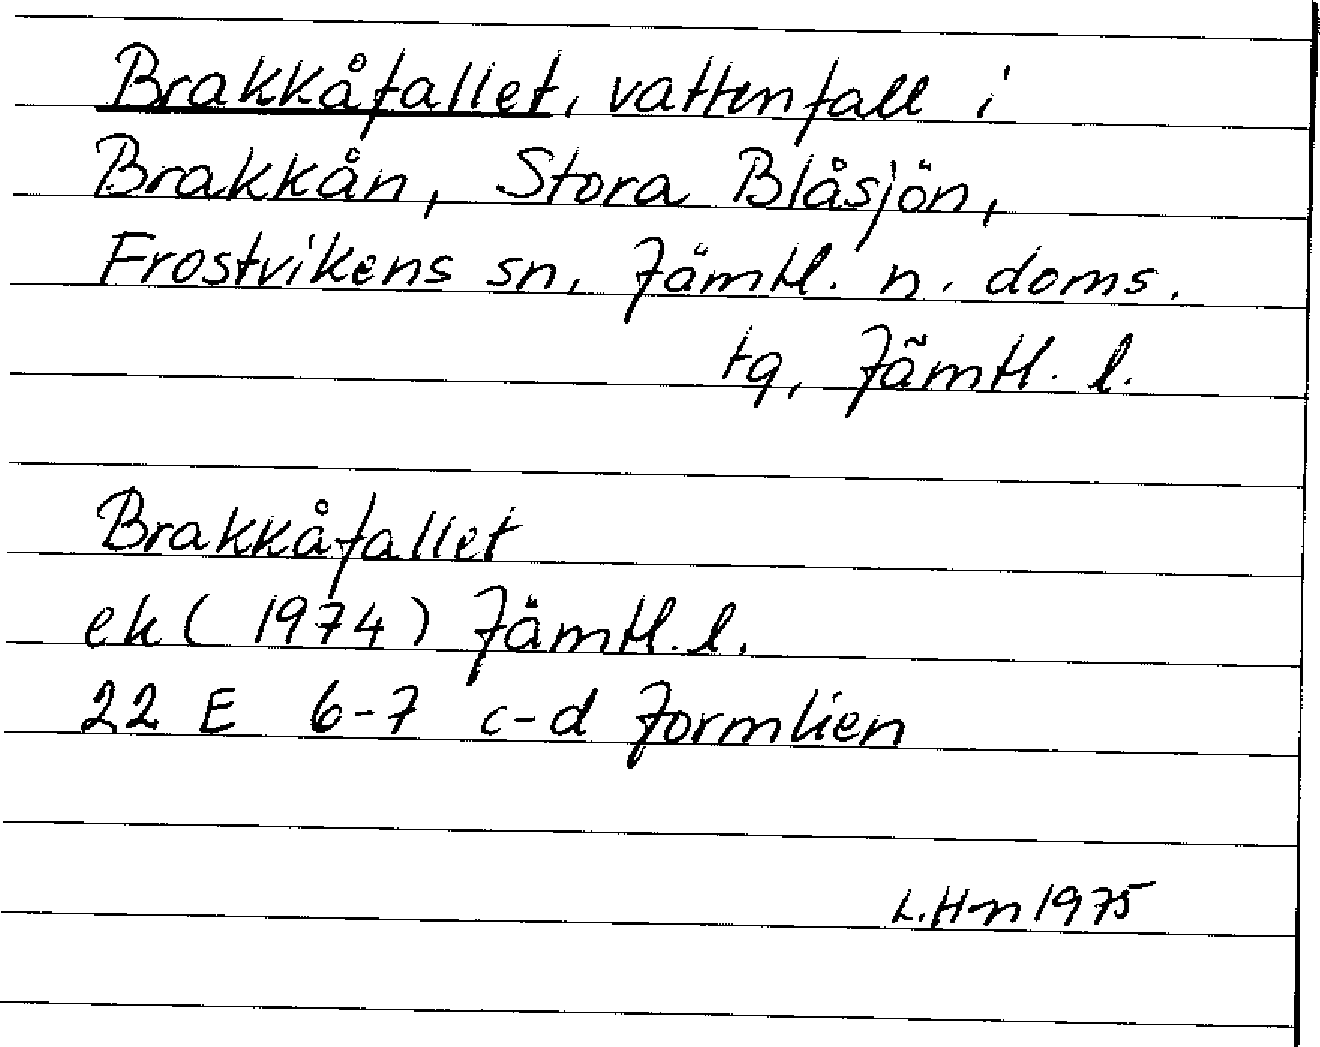 Brakkåfallet, vattenfall i
Brakkån, Stora Blåsjön,
Frostvikens sn, Jämtl. n. doms.
tg, Jämtl. l.
Brakkåfallet
ek (1974) Jämtl. l.
22 E 6-7 c-d Jormlien
L.H-n 1975